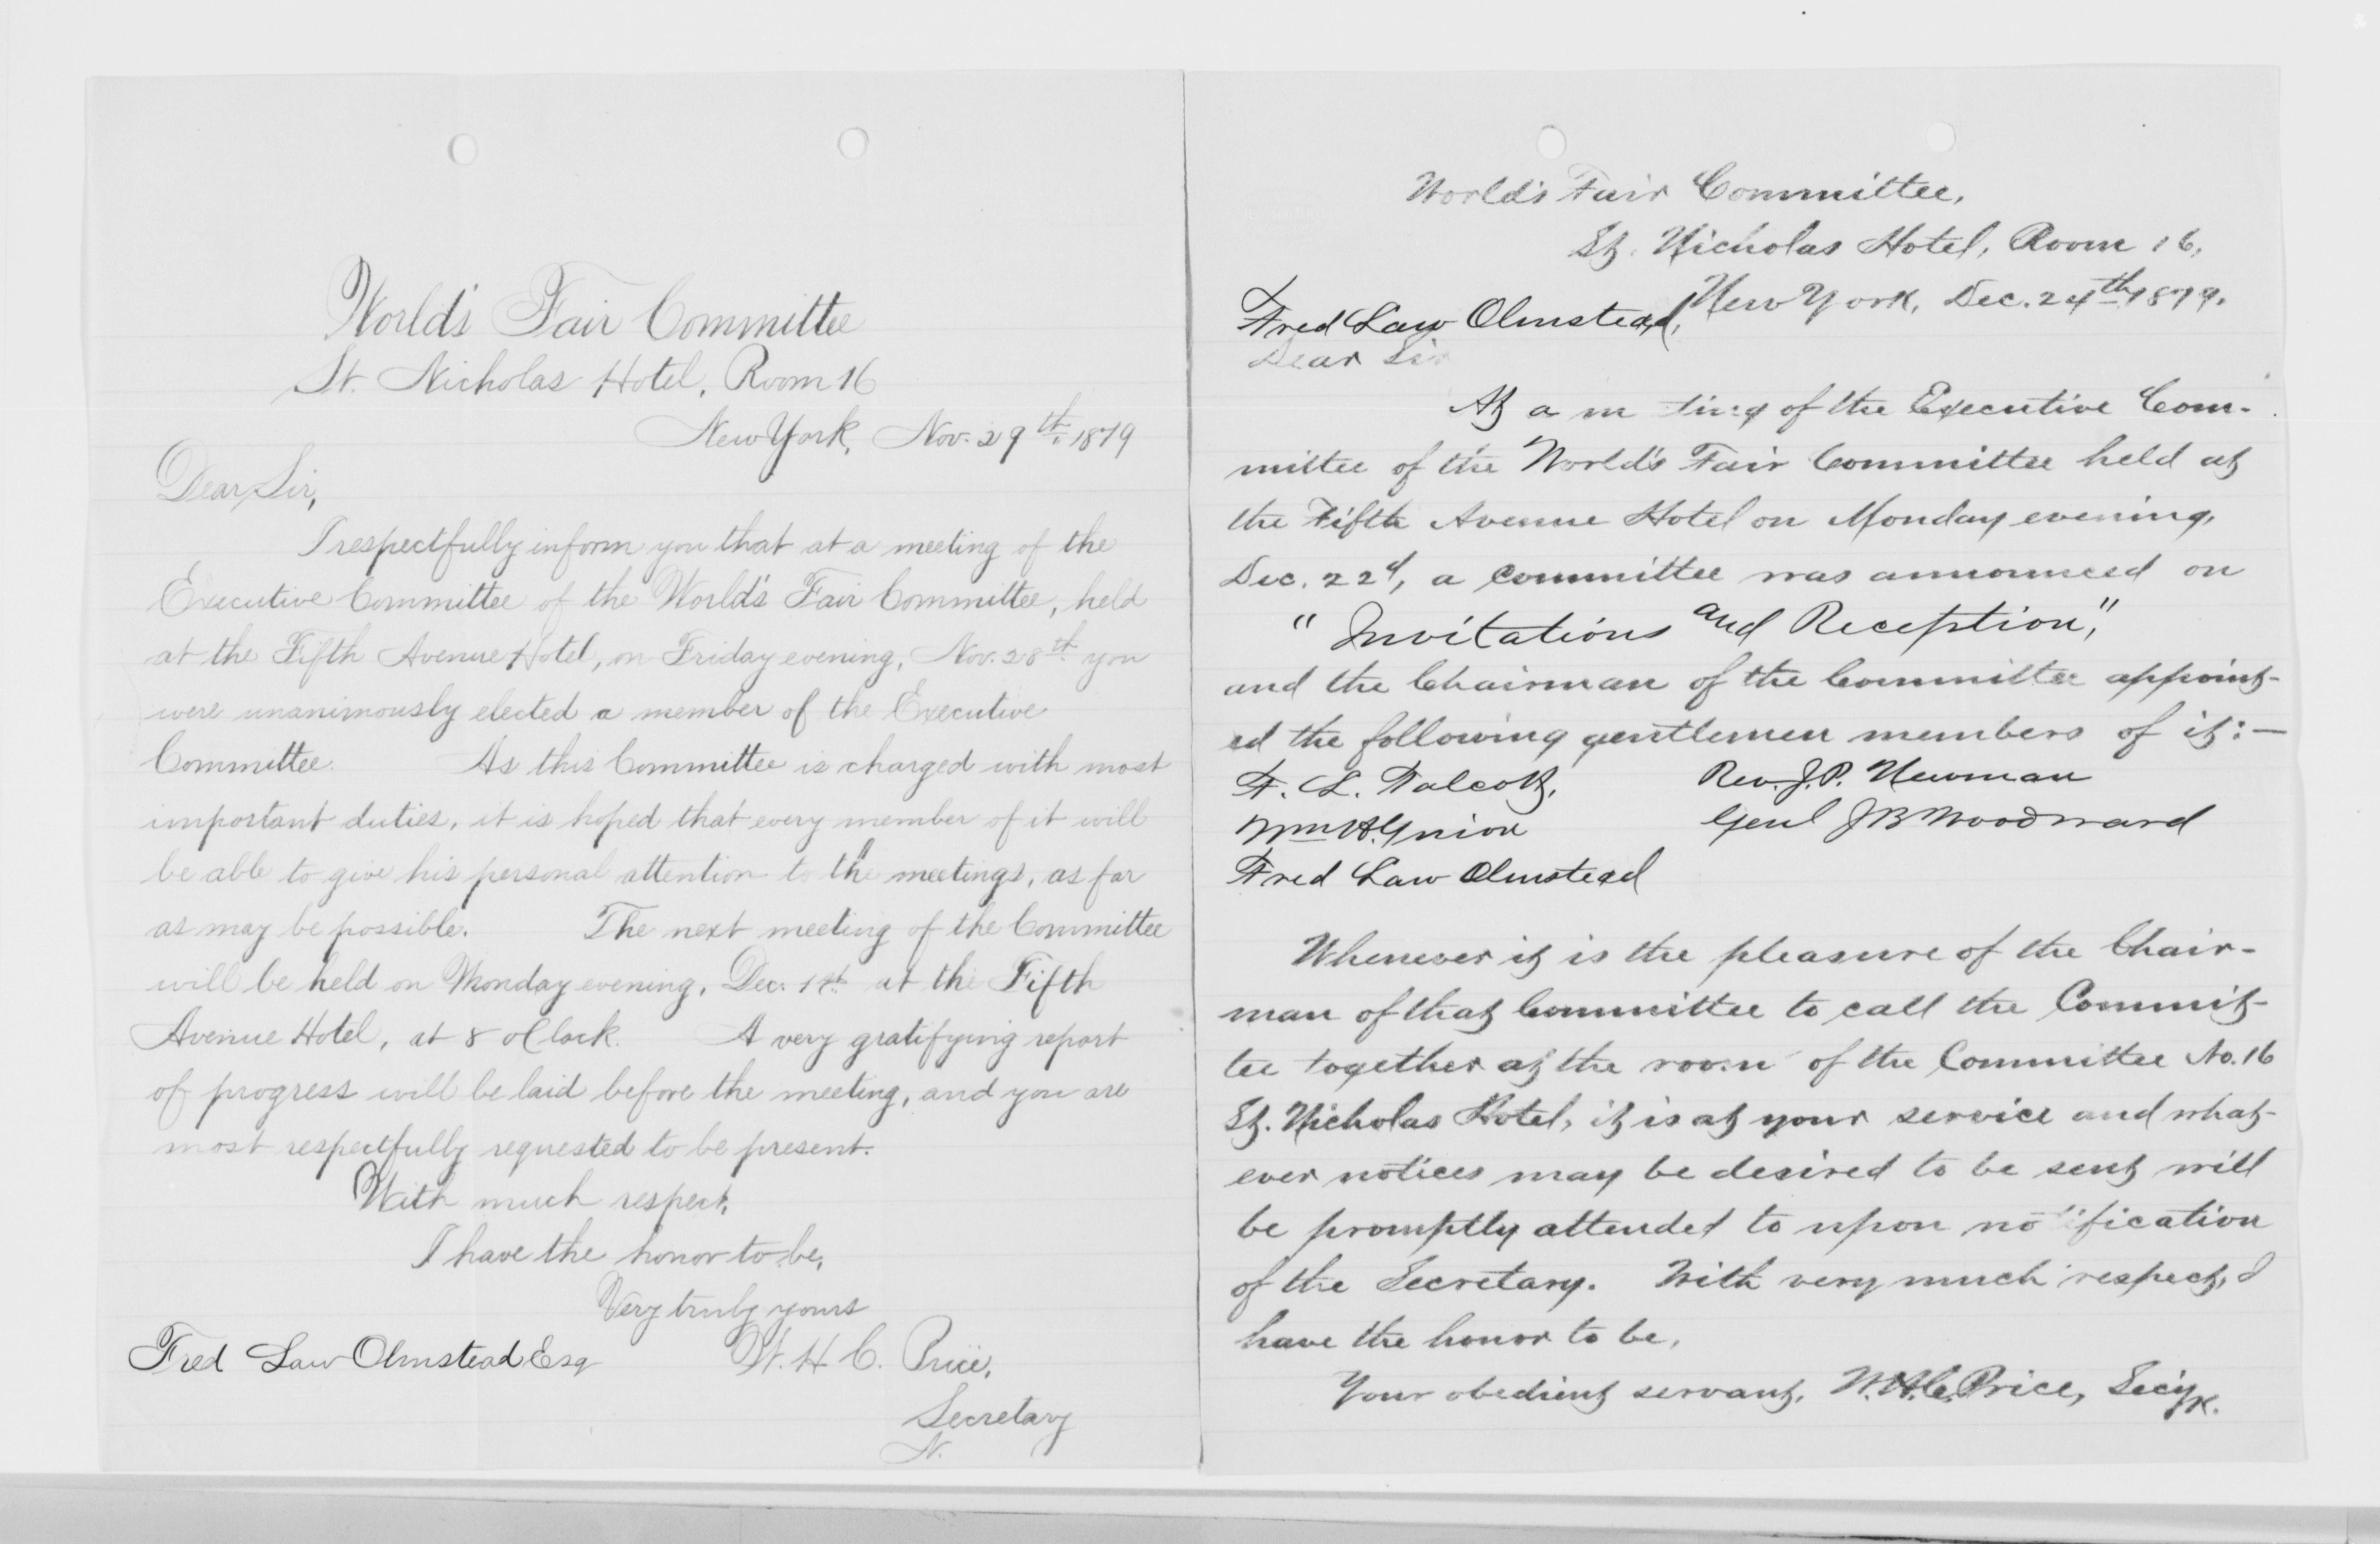 World's Fair Committee
St. Nicholas Hotel, Room 16
New York, Nov. 29th, 1879
Dear Sir,
I respectfully inform you that at a meeting of the
Executive Committee of the World's Fair Committee, held
at the Fifth Avenue Hotel, on Friday evening, Nov. 28th you
were unanimously elected a member of the Executive
Committee. As this Committee is charged with most
important duties, it is hoped that every member of it will
be able to give his personal attention to the meetings, as far
as may be possible. The next meeting of the Committee
will be held on Monday evening, Dec. 1st at the Fifth
Avenue Hotel, at 8 o'Clock. A very gratifying report
of progress will be laid before the meeting, and you are
most respectfully requested to be present.
With much respect,
I have the honor to be,
Very truly yours
Fred Law Olmstead Esq W. H. C. Price,
Secretary
N.
World's Fair Committee,
St. Nicholas Hotel, Room 16,
New York, Dec. 24th 1879.
Fred Law Olmstead,
Dear Sir
At a m ting of the Executive Com-
mittee of the World's Fair Committee held at
the Fifth Avenue Hotel on Monday evening,
Dec. 22d, a Committee was announced on
"Invitations and Reception,"
and the Chairman of the Committee appoint-
ed the following gentlemen members of it:—
F. L. Talcott, Rev. J. P. Newman
Wm H. Guion Genl J B Woodward
Fred Law Olmstead
Whenever it is the pleasure of the Chair-
man of that Committee to call the Commit-
tee together at the room of the Committee No. 16
St. Nicholas Hotel, it is at your service and what-
ever notices may be desired to be sent will
be promptly attended to upon notification
of the Secretary. With very much respect, I
have the honor to be,
Your obedient servant, W. H. C. Price, Sec'y
K.